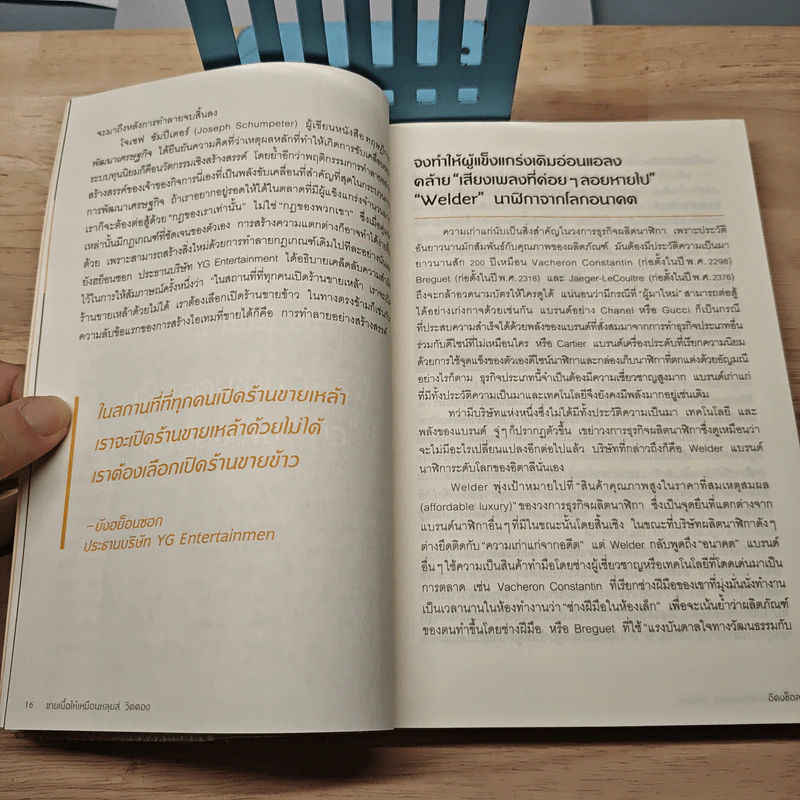 จะมาถึงหลังการทำลายจบสิ้นลง
โจเซฟ ชัมปีเตอร์ (Joseph Schumpeter) ผู้เขียนหนังสือ
พัฒนาเศรษฐกิจ ได้ยืนยันความคิดที่ว่าเหตุผลหลักที่ทำให้เกิดการขับเคลื่อน
ระบบทุนนิยมก็คือนวัตกรรมเชิงสร้างสรรค์ โดยย้ำอีกว่าพฤติกรรมการทำลาย
สร้างสรรค์ของเจ้าของกิจการนี่เองที่เป็นพลังขับเคลื่อนที่สำคัญที่สุดใน
การพัฒนาเศรษฐกิจ ถ้าเราอยากอยู่รอดให้ได้ในตลาดที่มีผู้แข็งแกร่งจำนวน
เราก็จะต้องต่อสู้ด้วย "กฎของเราเท่านั้น" ไม่ใช่ "กฎของพวกเขา"
เหล่านั้นมีกฎเกณฑ์ที่ชัดเจนของตัวเอง การสร้างความแตกต่างก็อาจทำได้
ด้วย เพราะสามารถสร้างสิ่งใหม่ด้วยการทำลายกฎเกณฑ์เดิมไปทีละอย่าง
ยังฮย็อนซอก ประธานบริษัท YG Entertainment ได้อธิบายเคล็ดลับความสำเร็จ
ไว้ในการให้สัมภาษณ์ครั้งหนึ่งว่า "ในสถานที่ที่ทุกคนเปิดร้านขายเหล้า เราจะเปิด
ร้านขายเหล้าด้วยไม่ได้ เราต้องเลือกเปิดร้านขายข้าว ในทางตรงข้ามก็เช่นกัน"
ความลับข้อแรกของการสร้างไอเทมที่ขายได้ก็คือ การทำลายอย่างสร้างสรรค์
ในสถานที่ที่ทุกคนเปิดร้านขายเหล้า
เราจะเปิดร้านขายเหล้าด้วยไม่ได้
เราต้องเลือกเปิดร้านขายข้าว
–ยังฮย็อนซอก
ประธานบริษัท YG Entertainmen
16 ขายเนื้อให้เหมือนหลุยส์ วิตตอง
จงทำให้ผู้แข็งแกร่งเดิมอ่อนแอลง
คล้าย "เสียงเพลงที่ค่อยๆ ลอยหายไป"
"Welder" นาฬิกาจากโลกอนาคต
ความเก่าแก่นับเป็นสิ่งสำคัญในวงการธุรกิจผลิตนาฬิกา เพราะประวัติ
อันยาวนานมักสัมพันธ์กับคุณภาพของผลิตภัณฑ์ มันต้องมีประวัติความเป็นมา
ยาวนานสัก 200 ปีเหมือน Vacheron Constantin (ก่อตั้งในปี พ.ศ. 2298)
Breguet (ก่อตั้งในปี พ.ศ. 2318) และ Jaeger-LeCoultre (ก่อตั้งในปี พ.ศ. 2376)
ถึงจะกล้าอวดนามบัตรให้ใครดูได้ แน่นอนว่ามีกรณีที่ "ผู้มาใหม่" สามารถต่อสู้
ได้อย่างเก่งกาจด้วยเช่นกัน แบรนด์อย่าง Chanel หรือ Gucci ก็เป็นกรณี
ที่ประสบความสำเร็จได้ด้วยพลังของแบรนด์ที่สั่งสมมาจากการทำธุรกิจประเภทอื่น
ร่วมกับดีไซน์ที่ไม่เหมือนใคร หรือ Cartier แบรนด์เครื่องประดับที่เรียกความนิยม
ด้วยการใช้จุดแข็งของตัวเองดีไซน์นาฬิกาและกล่องเก็บนาฬิกาที่ตกแต่งด้วยอัญมณี
อย่างไรก็ตาม ธุรกิจประเภทนี้จำเป็นต้องมีความเชี่ยวชาญสูงมาก แบรนด์เก่าแก่
ที่มีทั้งประวัติความเป็นมาและเทคโนโลยีจึงยังคงมีพลังมากอยู่เช่นเดิม
ทว่ามีบริษัทแห่งหนึ่งซึ่งไม่ได้มีทั้งประวัติความเป็นมา เทคโนโลยี และ
พลังของแบรนด์ จู่ๆ ก็ปรากฏตัวขึ้น เขย่าวงการธุรกิจผลิตนาฬิกาซึ่งดูเหมือนว่า
จะไม่มีอะไรเปลี่ยนแปลงอีกต่อไปแล้ว บริษัทที่กล่าวถึงก็คือ Welder แบรนด์
นาฬิการะดับโลกของอิตาลีนั่นเอง
Welder พุ่งเป้าหมายไปที่ "สินค้าคุณภาพสูงในราคาที่สมเหตุสมผล
(affordable luxury)" ของวงการธุรกิจผลิตนาฬิกา ซึ่งเป็นจุดยืนที่แตกต่างจาก
แบรนด์นาฬิกาอื่นๆ ที่มีในขณะนั้นโดยสิ้นเชิง ในขณะที่บริษัทผลิตนาฬิกาดังๆ
ต่างยึดติดกับ "ความเก่าแก่จากอดีต" แต่ Welder กลับพูดถึง "อนาคต" แบรนด์
อื่นๆ ใช้ความเป็นสินค้าทำมือโดยช่างผู้เชี่ยวชาญหรือเทคโนโลยีที่โดดเด่นมาเป็น
การตลาด เช่น Vacheron Constantin ที่เรียกช่างฝีมือของเขาที่มุ่งมั่นนั่งทำงาน
เป็นเวลานานในห้องทำงานว่า "ช่างฝีมือในห้องเล็ก" เพื่อจะเน้นย้ำว่าผลิตภัณฑ์
ของตนทำขึ้นโดยช่างฝีมือ หรือ Breguet ที่ใช้ "แรงบันดาลใจทางวัฒนธรรมกับ